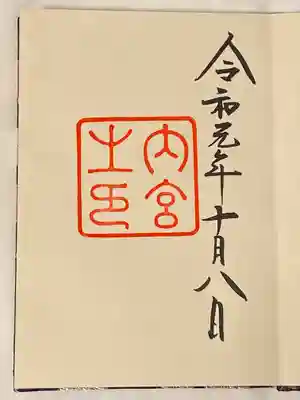 令和元年十月八日
内宮
之印